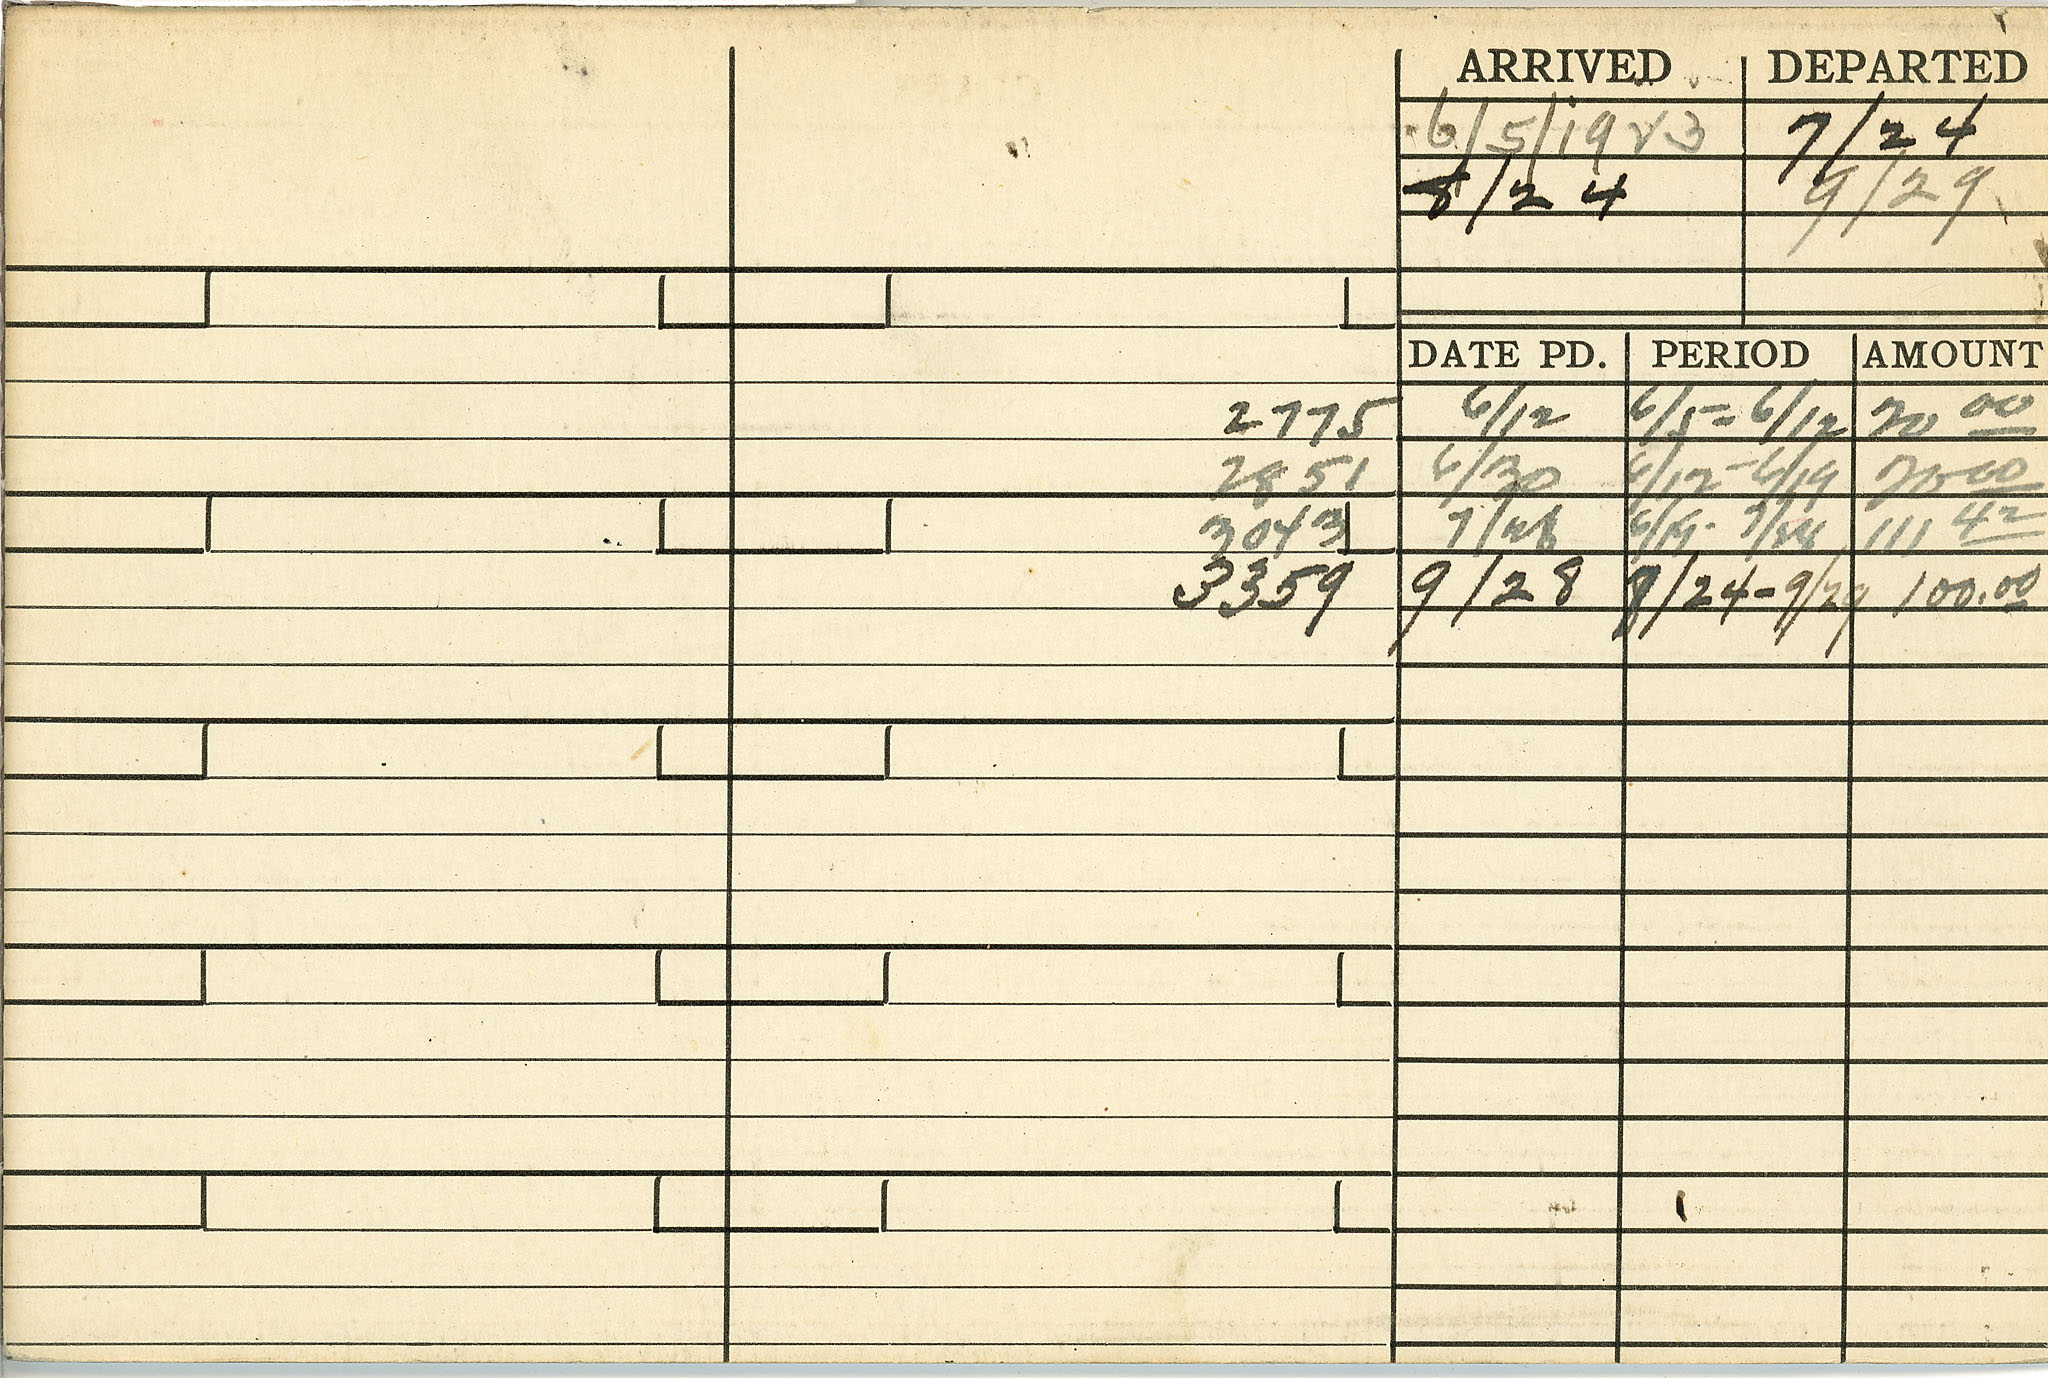 ARRIVED DEPARTED
6/5/1943 7/24
8/24 9/29
DATE PD. PERIOD AMOUNT
2775 6/12 6/5-6/12 20 00
2851 6/30 6/12-6/19 00
3043 7/28 6/19- 111 42
3359 9/28 8/24-9/29 100.00